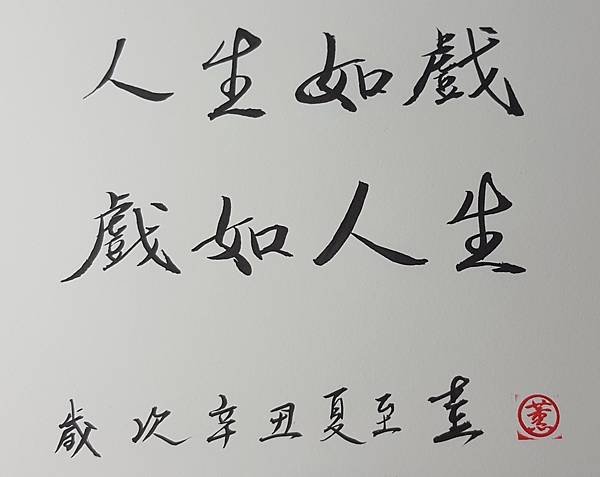 人生如戲
戲如人生
歲次辛丑夏至